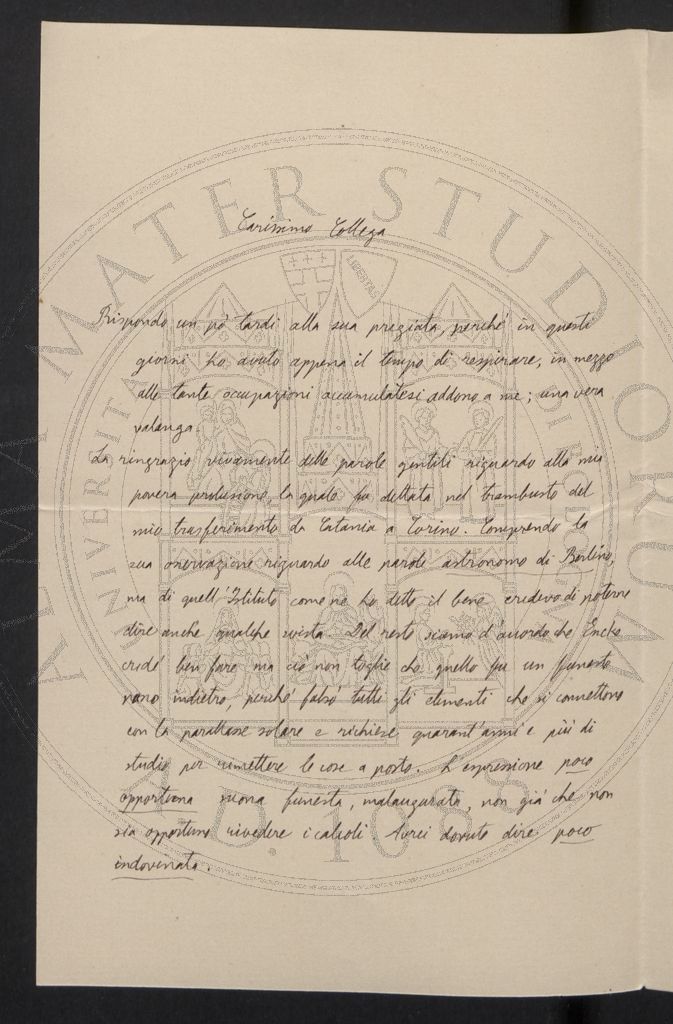 Carissimo Collega
Rispondo un pò tardi alla sua pregiata, perché in questi
giorni ho avuto appena il tempo di respirare, in mezzo
alle tante occupazioni accumulatesi addosso a me; una vera
valanga.
La ringrazio vivamente delle parole gentili riguardo alla mia
povera prolusione, la quale fu dettata nel trambusto del
mio trasferimento da Catania a Torino. Comprendo la
sua osservazione riguardo alle parole astronomo di Berlino,
ma di quell'Istituto come ne ho detto il bene credevo di poterne
dire anche qualche svista. Del resto siamo d'accordo che Encke
credé ben fare ma ciò non toglie che quello fu un funesto
passo indietro, perché falsò tutti gli elementi che si connettono
con la parallasse solare e richiese quarant'anni e più di
studio per rimettere le cose a posto. L'espressione poco
opportuna suona funesta, malaugurata, non già che non
sia opportuno rivedere i calcoli. Avrei dovuto dire poco
indovinata.
ALMA MATER STUDIORUM
UNIVERSITA DI BOLOGNA
LIBERTAS
A.D. 1088